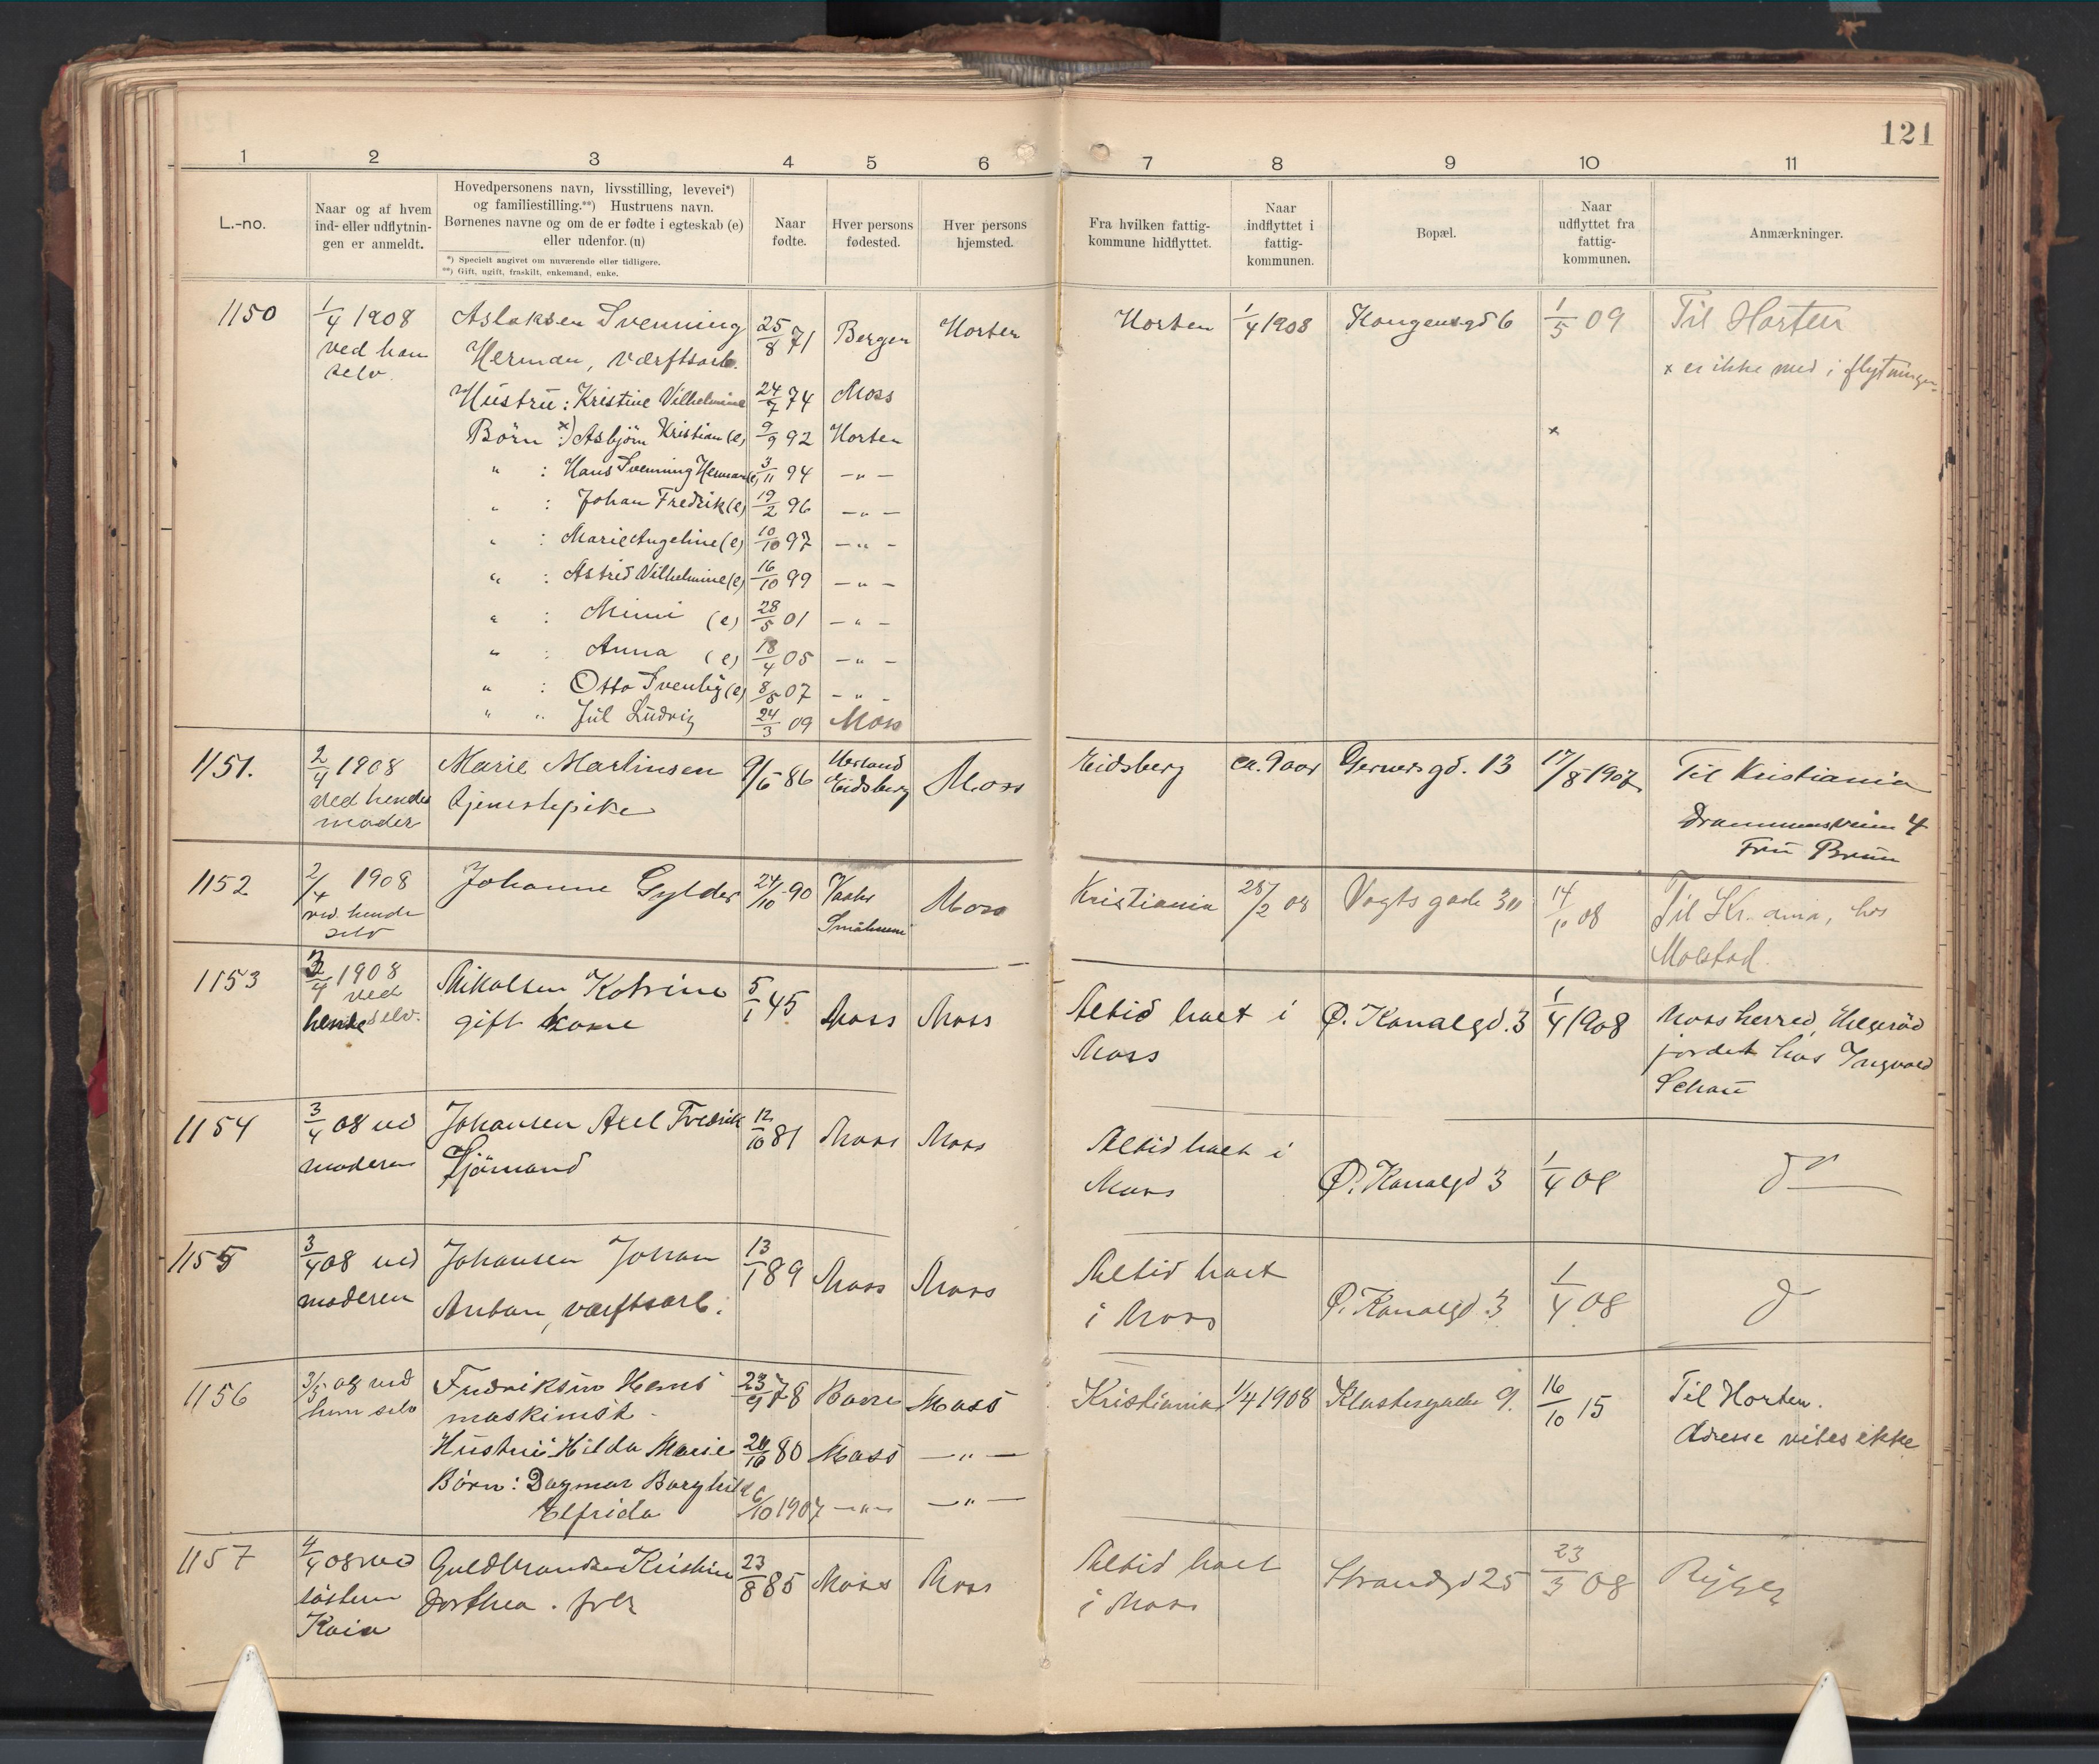 121
1 2 3 4 5 6 7 8 9 10 11
L.-no.
Naar og af hvem
ind- eller udflytnin-
gen er anmeldt.
Hovedpersonens navn, livsstilling, levevei*)
og familiestilling.**) Hustruens navn.
Børnenes navne og om de er fødte i egteskab (e)
eller udenfor. (u)
*) Specielt angivet om nuværende eller tidligere.
**) Gift, ugift, fraskilt, enkemand, enke.
Naar
fødte.
Hver persons
fødested.
Hver persons
hjemsted.
Fra hvilken fattig-
kommune hidflyttet.
Naar
indflyttet i
fattig-
kommunen.
Bopæl.
Naar
udflyttet fra
fattig-
kommunen.
Anmærkninger.
1150 1/4 1908 Aslaksen Svenning 25/8 71 Bergen Horten Horten 1/4 1908 Kongensgd 6 1/5 09 Til Horten
ved ham Herman, værftsarb.
selv.
x er ikke med i flytningen
Hustru: Kristine Vilhelmine 24/7 74 Moss
Børn x) Asbjørn Kristian (e) 9/9 92 Horten x
" : Hans Svenning Herman (e) 3/11 94 — " —
" : Johan Fredrik (e) 19/2 96 — " —
" : Marie Angeline (e) 10/10 97 — " —
" : Astrid Vilhelmine (e) 16/10 99 — " —
" : Mimi (e) 28/5 01 — " —
" : Anna (e) 18/4 05 — " —
" : Otto (e) 8/5 07 — " —
" " Jul Ludvig 24/3 09 Moss
1151. 2/4 1908 Marie Martinsen 9/6 86 Herland Moss Eidsberg ca. 9 aar Gernersgd. 13 17/8 1907 Til Kristiania
ved hendes tjenestepike Eidsberg
moder
Drammensveien 4
Fru Bruun
1152 2/4 1908 Johanne Gylder 24/10 90 Moss Kristiania 28/2 08 Vogts gade 30 14/10 08 Til Kr.ania, hos
ved hende
selv
Molstad.
1153 3/4 1908 Mikalsen Katrine 5/1 45 Moss Moss Altid havt i Ø. Kanalgd. 3 1/4 1908 Moss herred,
ved gift kone Moss jordet hos Ingvald
hende selv. Schau
1154 3/4 08 ved Johansen Axel Fredrik 12/10 81 Moss Moss Altid havt i Ø. Kanalgd 3 1/4 08 do —
moderen Sjömand Moss
1155 3/4 08 ved Johansen Johan 13/1 89 Moss Moss Altid havt Ø. Kanalgd. 3 1/4 08 do
moderen Anton, værftsarb. i Moss
1156 08 ved Fredriksen Hans 23/9 78 Borre Moss Kristiania 1/4 1908 Klostergade 9. 16/10 15 Til Horten.
ham selv maskinist. Adresse vites ikke
Hustru Hilda Marie 80 Moss — " —
Børn: Dagmar Borghild
Elfrida 6/10 1907 — " — — " —
1157 4/4 08 ved Guldbrandsen Kristine 23/8 85 Moss Moss Altid havt Strandgd 25 23/3 08 Rygge
søsteren Dorthea. frk i Moss
Kaia